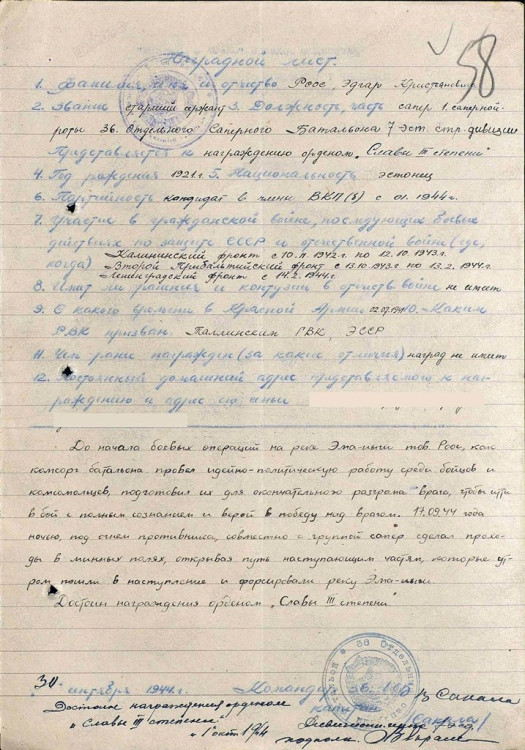 58
Наградной лист.
1. Фамилия, имя и отчество Роос, Эдгар Кристьянович
2. Звание старший сержант 3. Должность, часть сапер 1. саперной
роты 36. Отдельного Саперного Батальона 7 эст. стр. дивизии
Представляется к награждению орденом „Славы III степени"
4. Год рождения 1921 г. 5. Национальность эстонец
6. Партийность кандидат в члены ВКП(б) с 01.1944 г.
7. Участие в гражданской войне, последующих боевых
действиях по защите СССР и отечественной войне (где,
когда) Калининский фронт с 10.11 1942 г. по 12.10 1943 г.
Второй Прибалтийский фронт с 13.10 1943 г. по 13.2. 1944 г.
Ленинградский фронт с 14.2. 1944 г.
8. Имеет ли ранения и контузии в отечеств. войне не имеет
9. С какого времени в Красной Армии 02.07.1941 10. Каким
РВК призван Таллинским ГВК, ЭССР
11. Чем ранее награжден (за какие отличия) наград не имеет
12. Постоянный домашний адрес представляемого к наг-
раждению и адрес его семьи
До начала боевых операций на реке Эма-иыги тов. Роос, как
комсорг батальона провел идейно-политическую работу среди бойцов и
комсомольцев, подготовил их для окончательного разгрома врага, чтобы итти
в бой с полным сознанием и верой в победу над врагом. 17.09.44 года
ночью, под огнем противника, совместно с группой сапер сделал прохо-
ды в минных полях, открывая путь наступающим частям, которые ут-
ром пошли в наступление и форсировали реку Эма-иыги.
Достоин награждения орденом „Славы III степени"
30 сентября 1944 г. Командир 36 ОСБ
капитан
Достоин награждения орденом
„Славы III степени"
1 окт. 1944